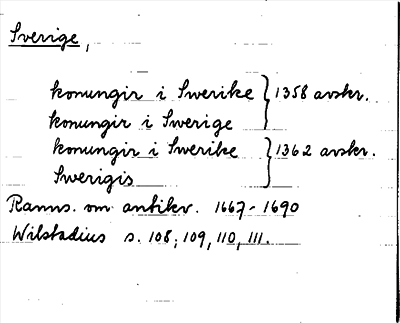 Sverige,
konungir i Swerike } 1358 avskr.
konungir i Swerige
konungir i Swerike } 1362 avskr.
Swerigis
Ranns. om antikv. 1667-1690
Wilstadius s. 108, 109, 110, 111.